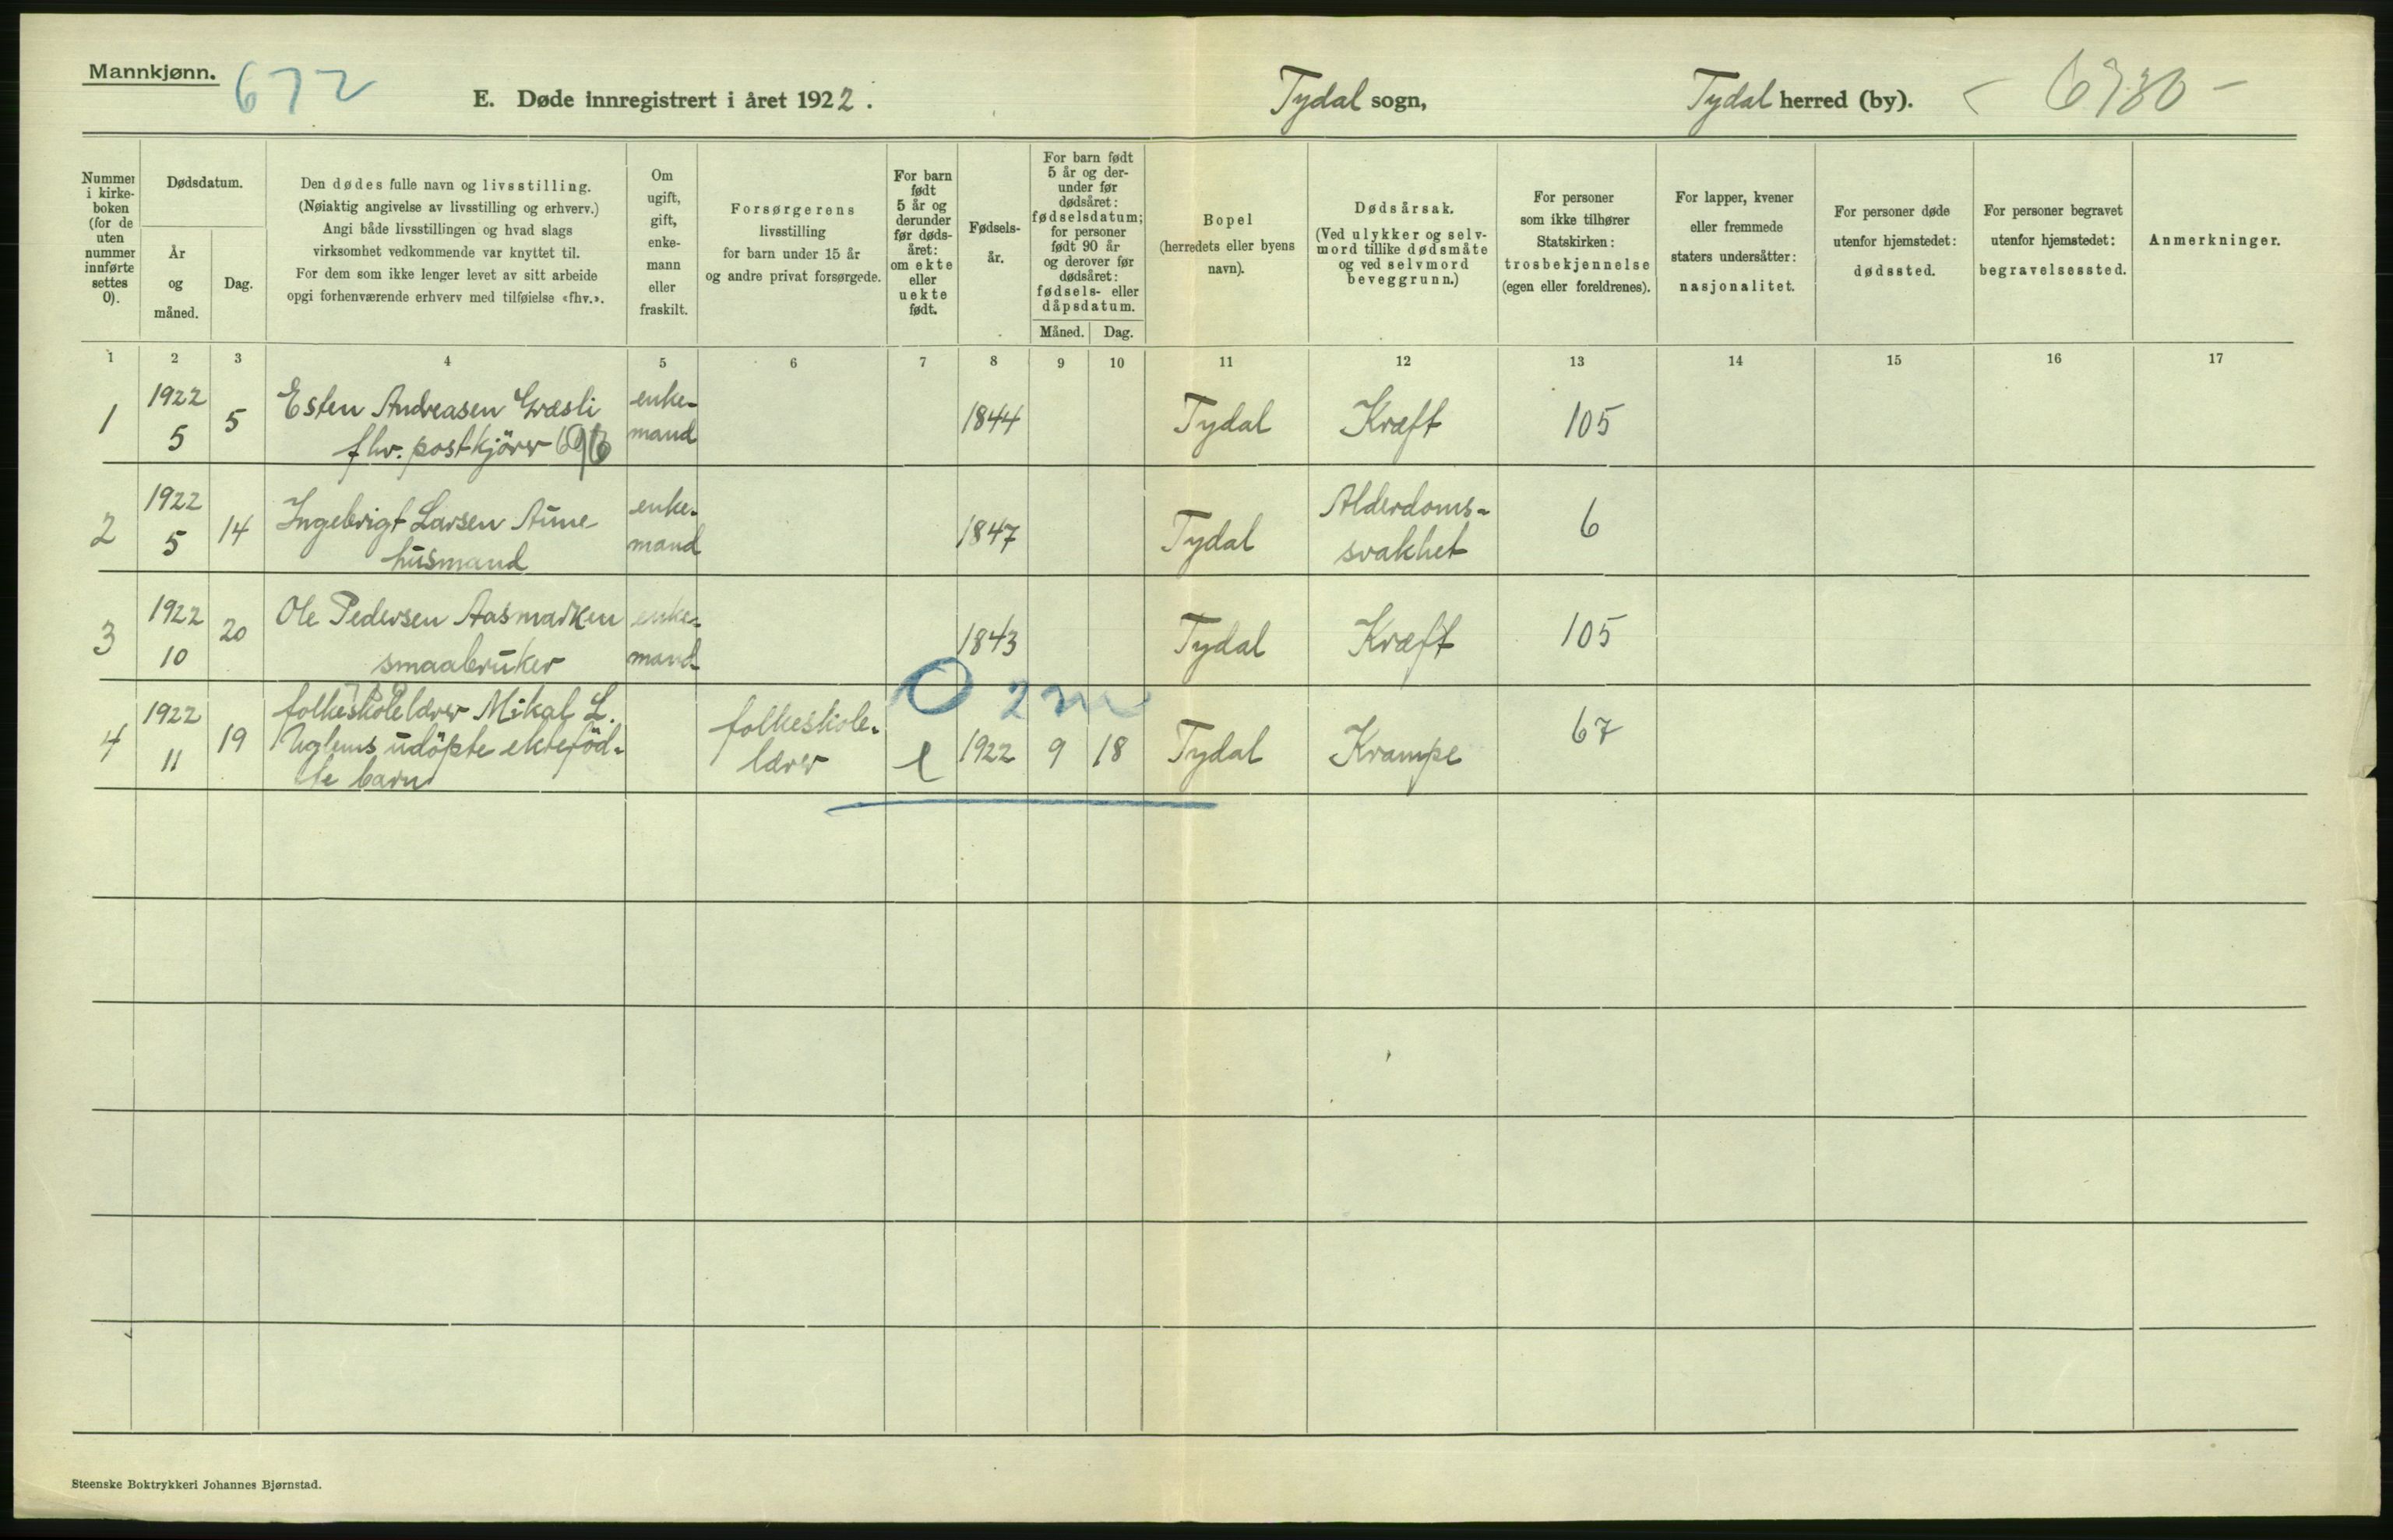 Mannkjønn.
672
E. Døde innregistrert i året 1922.
Tydal sogn,
Tydal herred (by).
Nummer
i kirke-
boken
(for de
uten
nummer
innførte
settes
0).
Dødsdatum.
År
og
måned.
Dag.
Den dødes fulle navn og livsstilling.
(Nøiaktig angivelse av livsstilling og erhverv.)
Angi både livsstillingen og hvad slags
virksomhet vedkommende var knyttet til.
For dem som ikke lenger levet av sitt arbeide
opgi forhenværende erhverv med tilføielse «fhv.».
Om
ugift,
gift,
enke-
mann
eller
fraskilt.
Forsørgerens
livsstilling
for barn under 15 år
og andre privat forsørgede.
For barn
født
5 år og
derunder
før døds-
året:
om ekte
eller
uekte
født.
Fødsels-
år.
For barn født
5 år og der-
under før
dødsåret:
fødselsdatum;
for personer
født 90 år
og derover før
dødsåret:
fødsels- eller
dåpsdatum.
Måned. Dag.
Bopel
(herredets eller byens
navn).
Dødsårsak.
(Ved ulykker og selv-
mord tillike dødsmåte
og ved selvmord
beveggrunn.)
For personer
som ikke tilhører
Statskirken:
trosbekjennelse
(egen eller foreldrenes).
For lapper, kvener
eller fremmede
staters undersåtter:
nasjonalitet.
For personer døde
utenfor hjemstedet:
dødssted.
For personer begravet
utenfor hjemstedet:
begravelsessted.
Anmerkninger.
1 2 3 4 5 6 7 8 9 10 11 12 13 14 15 16 17
1 1922 5 5 Esten Andreasen Græsli enke- 1844 Tydal Kræft 105
fhv. postkjörer mand
2 1922 5 14 Ingebrigt Larsen Aune enke- 1847 Tydal Alderdoms- 6
husmand mand svakhet
3 1922 10 20 Ole Pedersen Aasmarken enke- 1843 Tydal Kræft 105
smaabruker mand
O 2 m
4 1922 11 19 folkeskolelærer Mikal L. folkeskole- e 1922 9 18 Tydal Krampe 67
Uglems udöpte ekteföd- lærer
te barn
Steenske Boktrykkeri Johannes Bjørnstad.